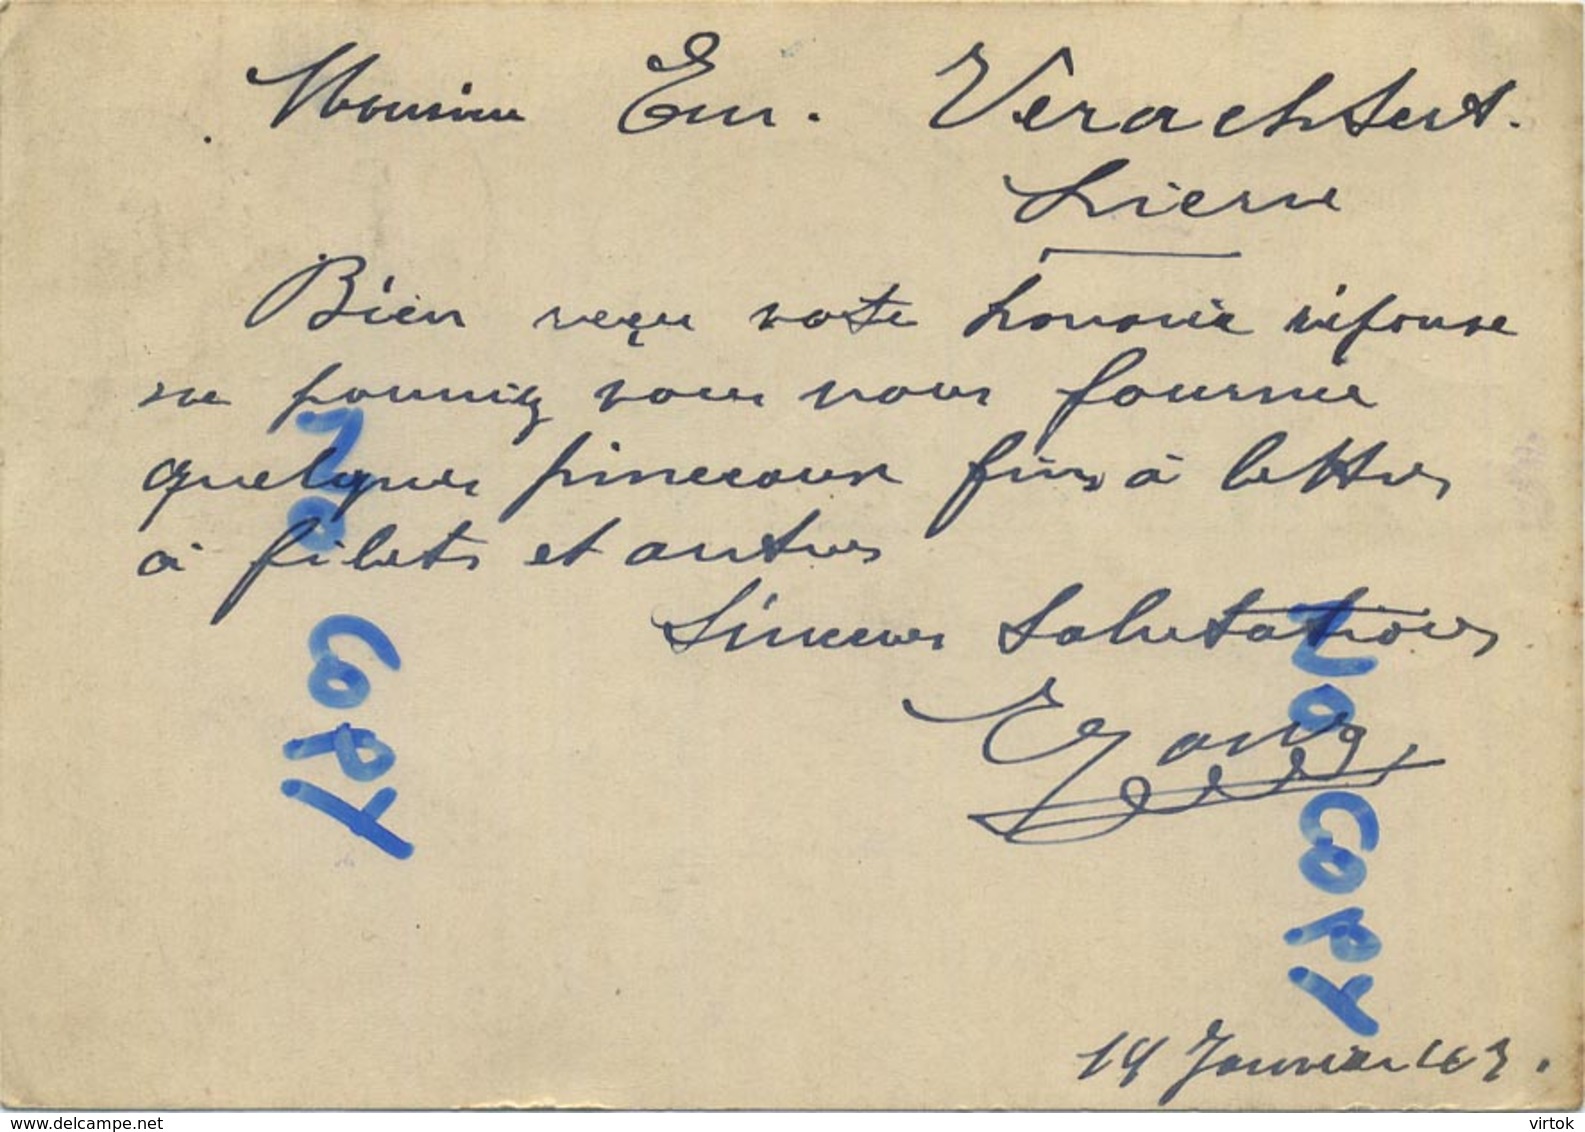 Monsieur Em. Verachtert.
Lierre
Bien reçu votre honorée réponse
ne pourriez vous nous fournir
quelques pinceaux fins à lettres
à filets et autres
Sincères Salutations
No Copy
No Copy
14 Janvier 43.
www.delcampe.net
virtok